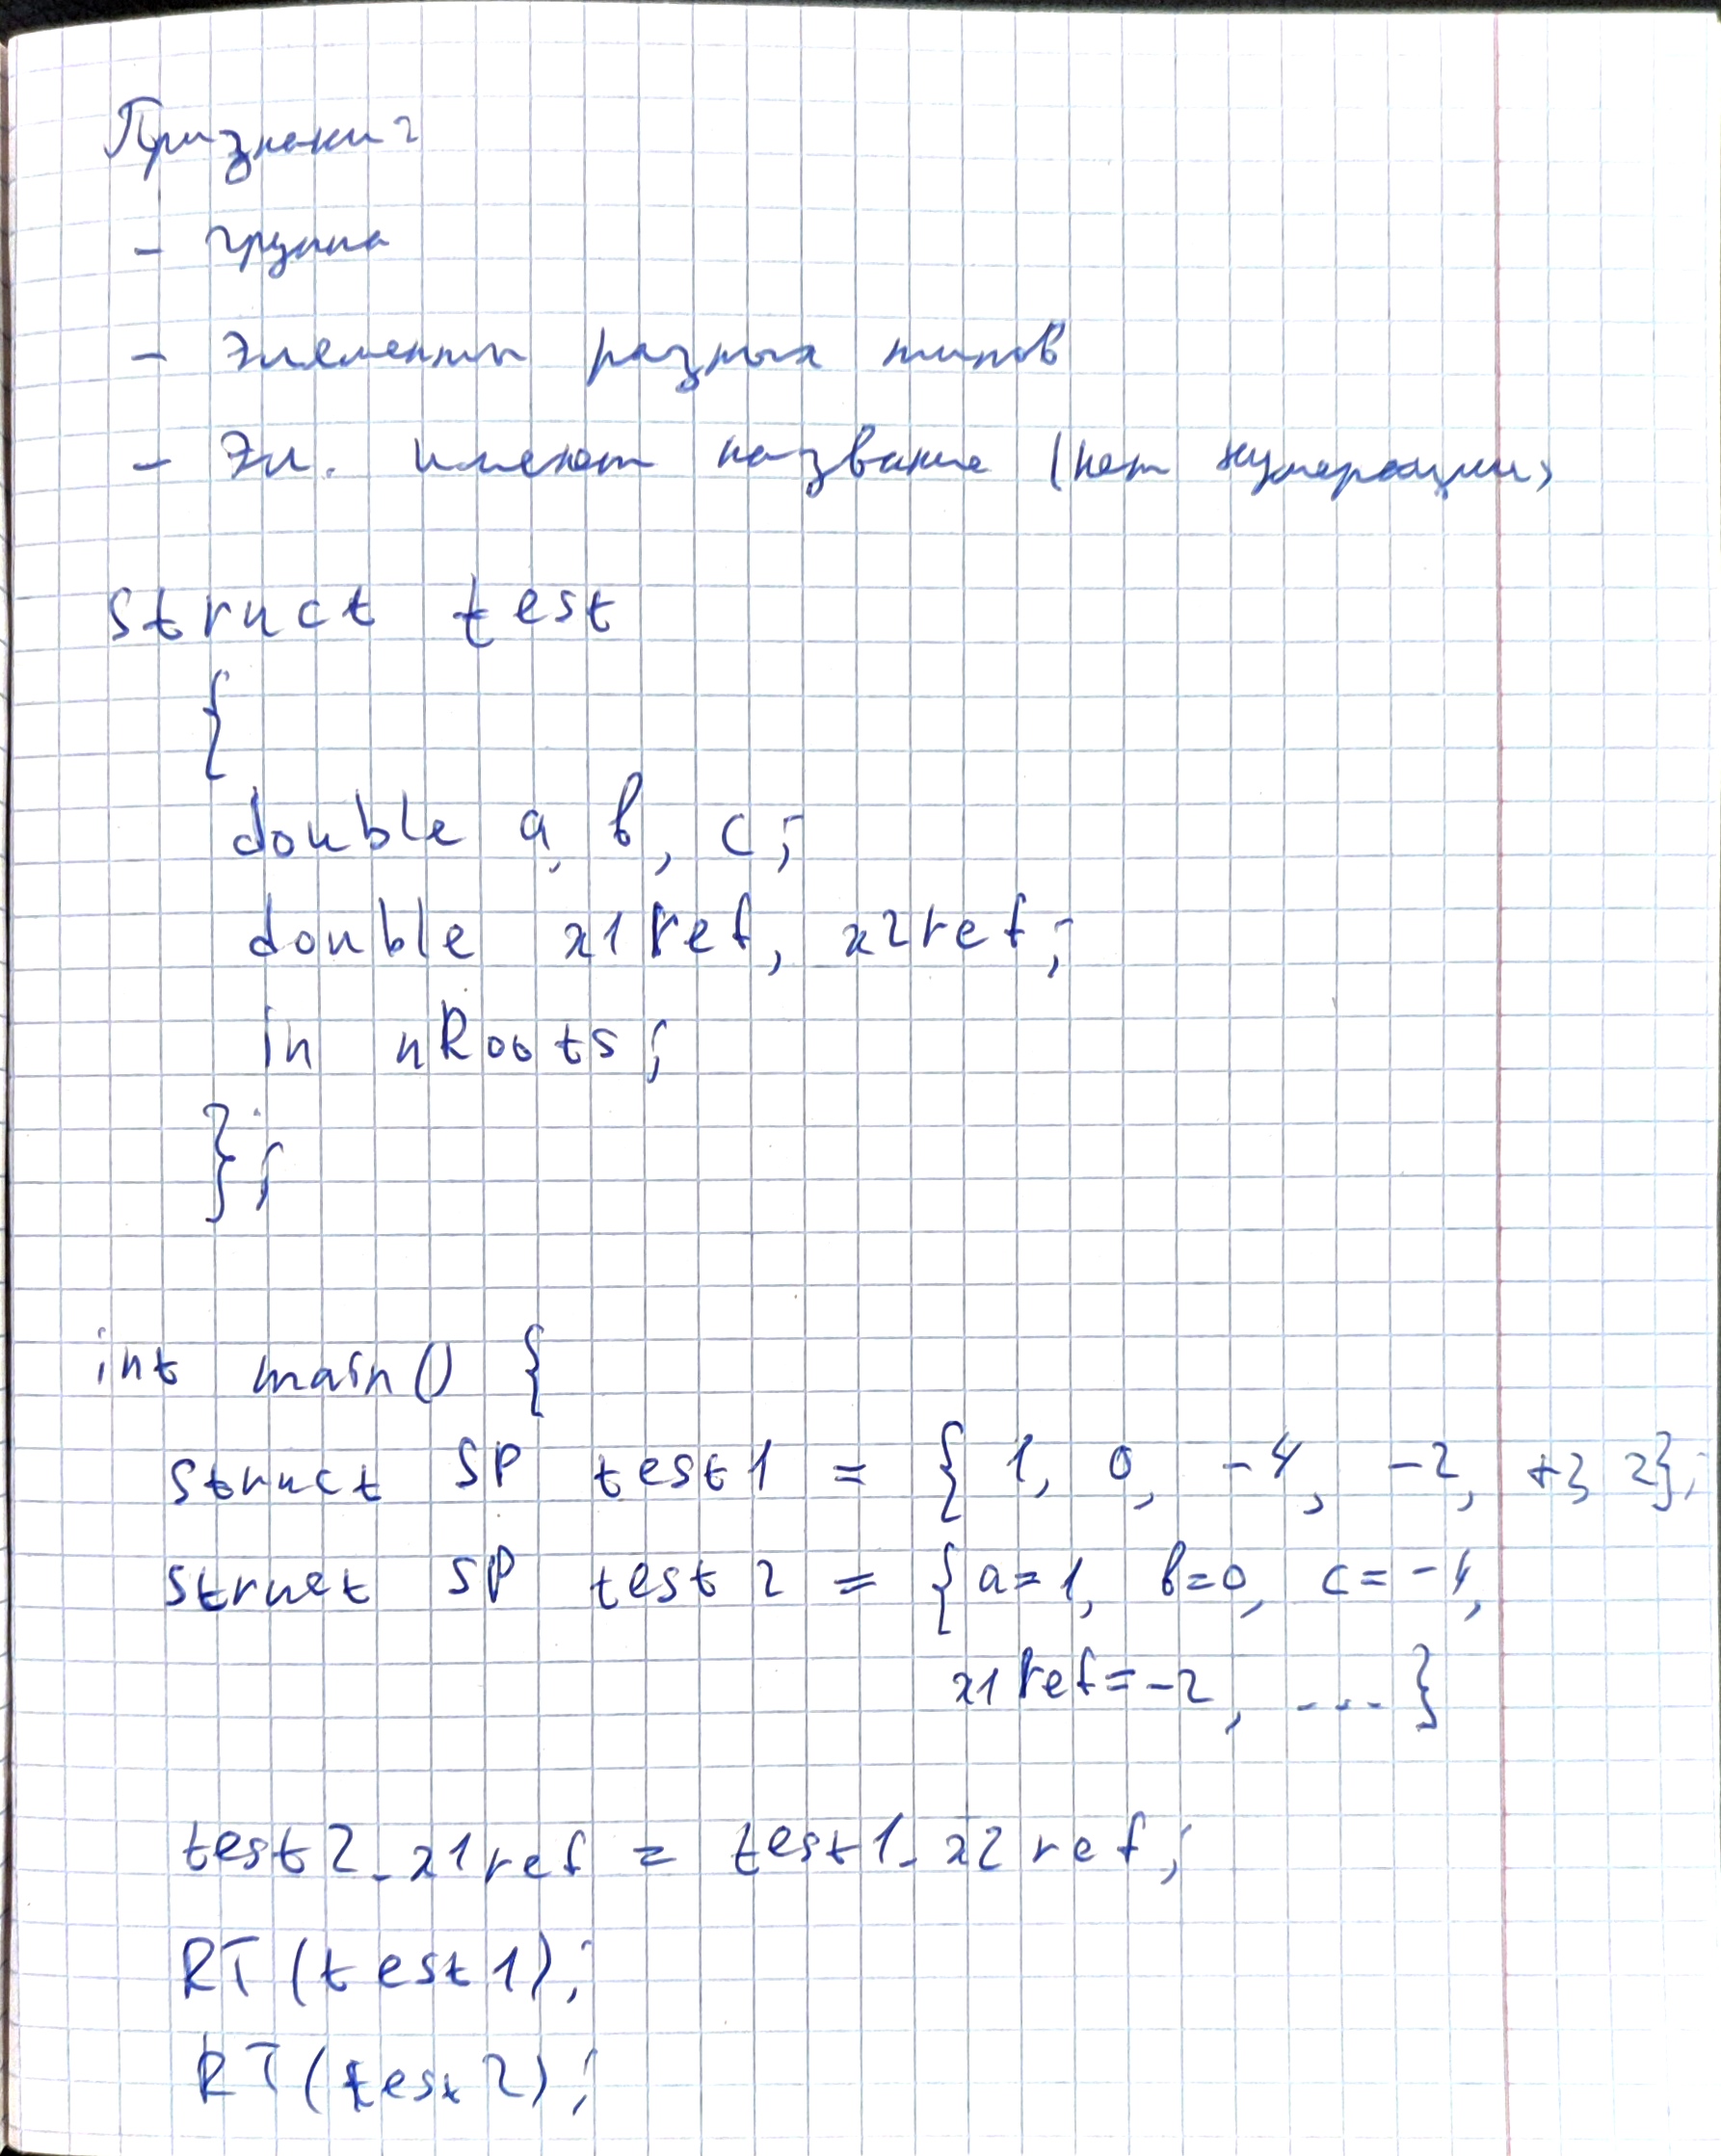 Признаки:
- группа
- Элементы разных типов
- Эл. имеют название (нет нумерации)
struct test
{
double a, b, c;
double x1ref, x2ref;
in nRoots;
};
int main() {
struct SP test1 = { 1, 0, -4, -2, +2, 2};
struct SP test2 = { a=1, b=0, c=-4,
x1ref=-2, ...}
test2.x1ref = test1.x2ref;
RT(test1);
RT(test2);